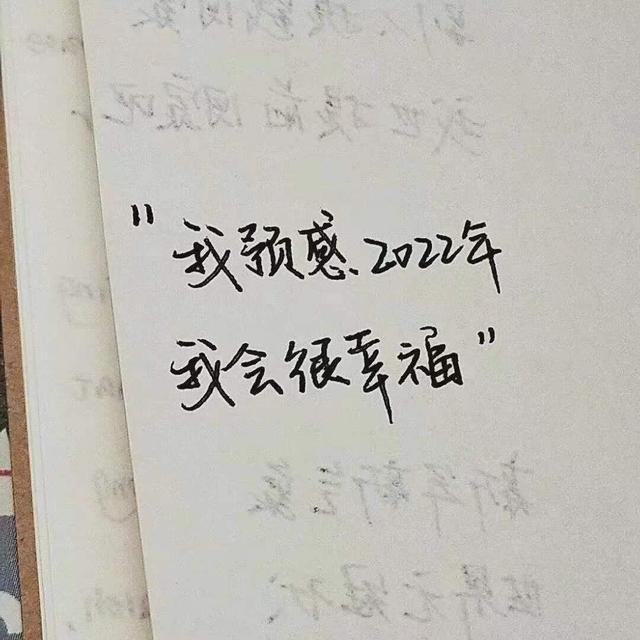 "我预感、2022年
我会很幸福"